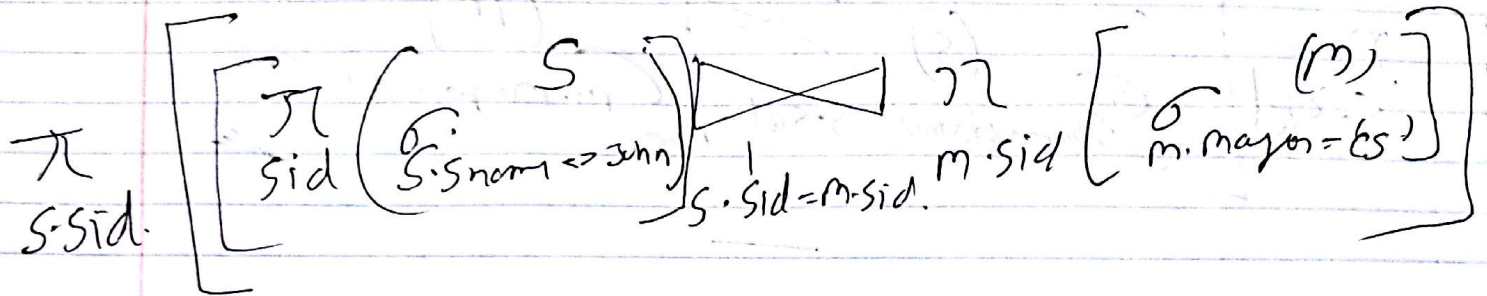 π S.Sid. [[π sid (σ S.Sname <> John (S))] ⋈ S.Sid=m.sid. π m.sid [σ m.major='CS' (m)]]